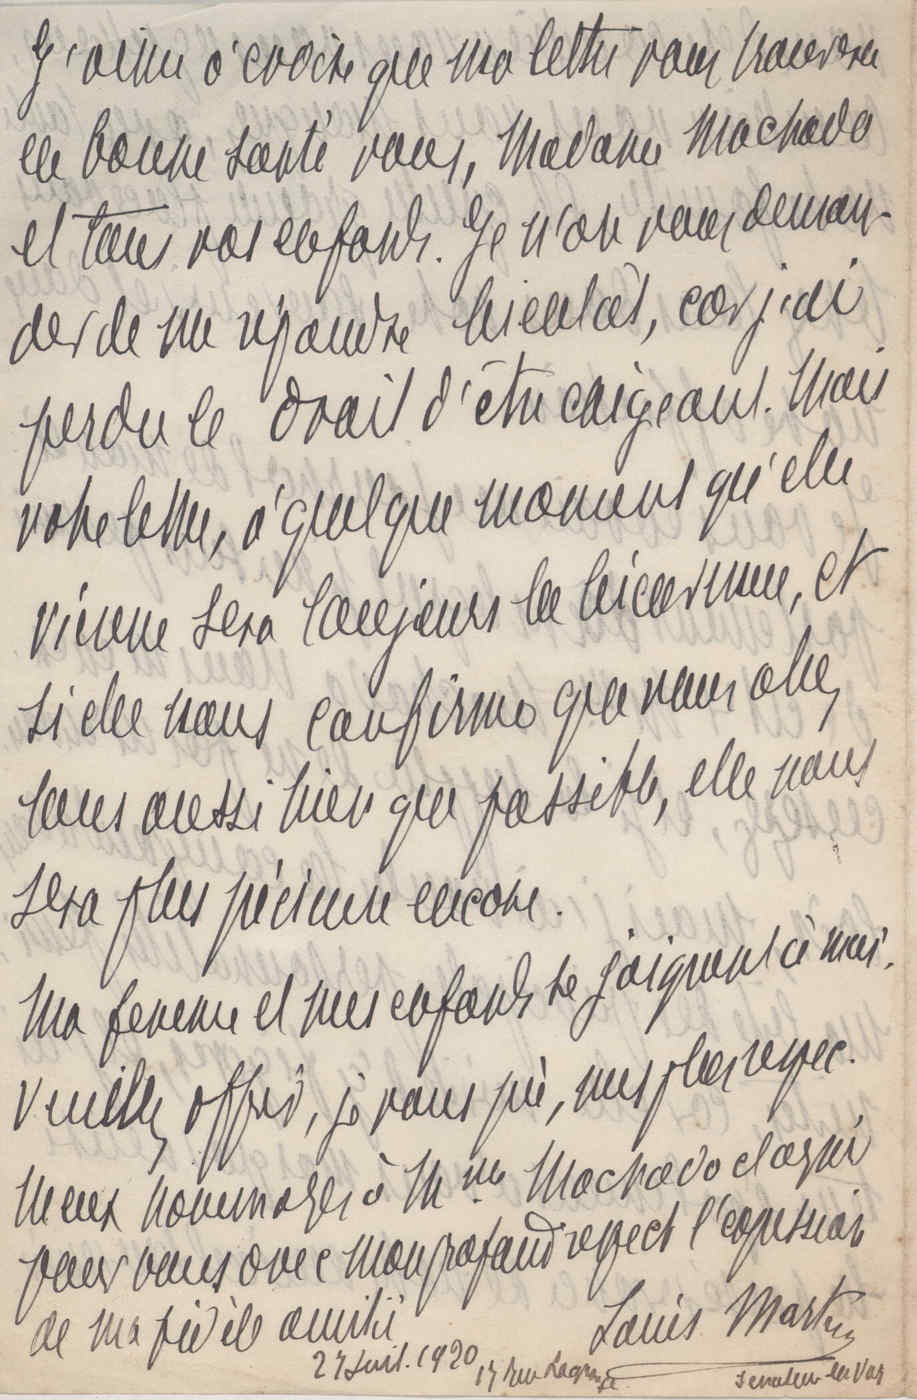 J'aime à croire que ma lettre vous trouvera
en bonne santé vous, Madame Machado
et tous vos enfants. Je n'ose vous deman-
der de me répondre bientôt, car j'ai
perdu le droit d'être exigeant. Mais
votre lettre, à quelque moment qu'elle
vienne sera toujours la bienvenue, et
si elle nous confirme que vous allez
tous aussi bien que possible, elle nous
sera plus précieuse encore.
Ma femme et mes enfants se joignent à moi.
Veuillez offrir, je vous prie, mes plus respec-
tueux hommages à Mme Machado et agréer
pour vous avec mon profond respect l'expression
de ma fidèle amitié
Louis Martin
27 juil. 1920 17 rue Lagrange sénateur du Var